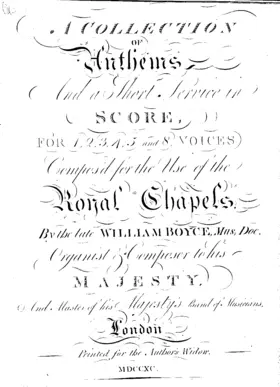 A COLLECTION
OF
Anthems
And a Short Service in
SCORE,
FOR 1, 2, 3, 4, 5 and 8, VOICES
Compos'd for the Use of the
Royal Chapels.
By the late WILLIAM BOYCE, Mus, Doc.
Organist & Composer to his
MAJESTY.
And Master of his Majesty's Band of Musicians.
London
Printed for the Author's Widow.
MDCCXC.